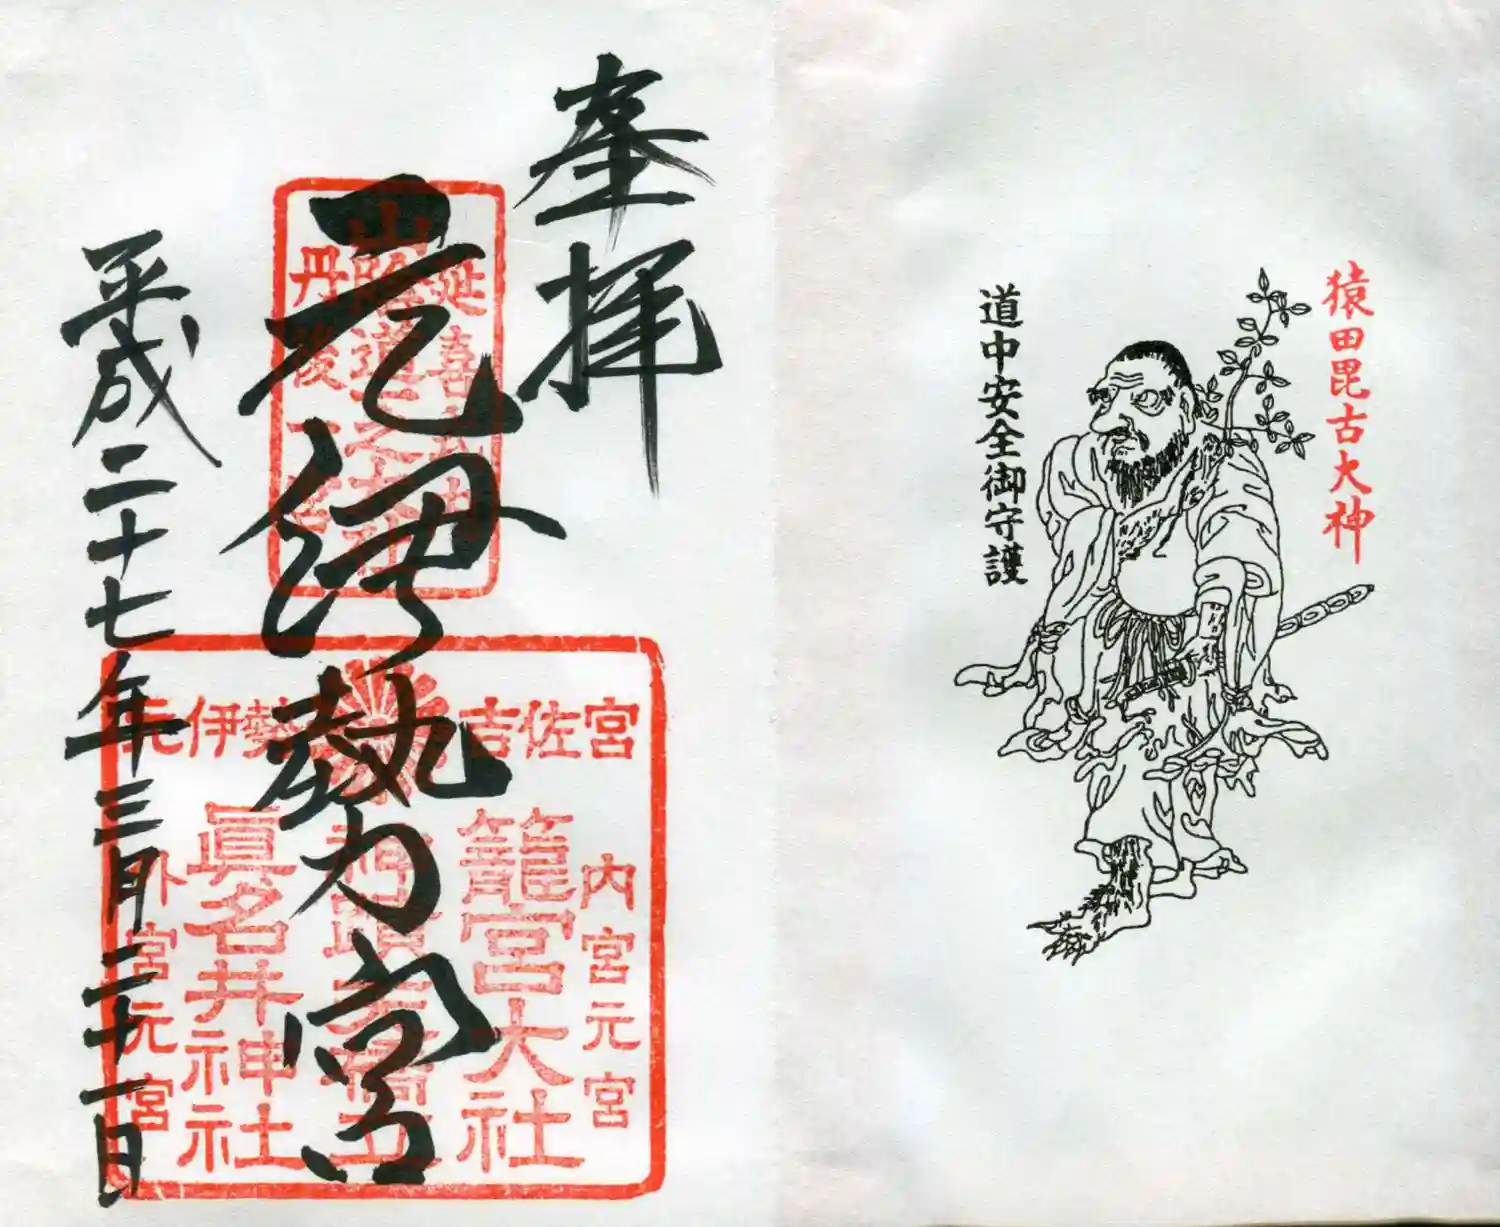 猿田毘古大神
道中安全御守護
奉拝
元伊勢宮
平成二十七年三月二十一日
延喜式
山陰道
丹後
元伊勢
吉佐宮
内宮元宮
籠宮大社
眞名井神社
外宮元宮